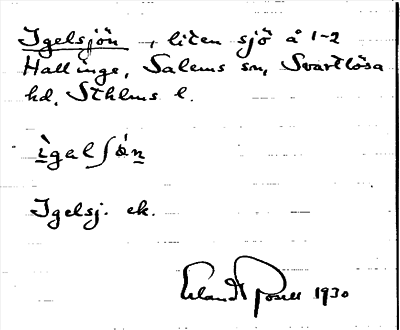 Igelsjön, liten sjö å 1-2
Hallinge, Salems sn, Svartlösa
hd, Sthlms l.
ìgalʃǿn
Igelsj. ek.
Erland Rosell 1930